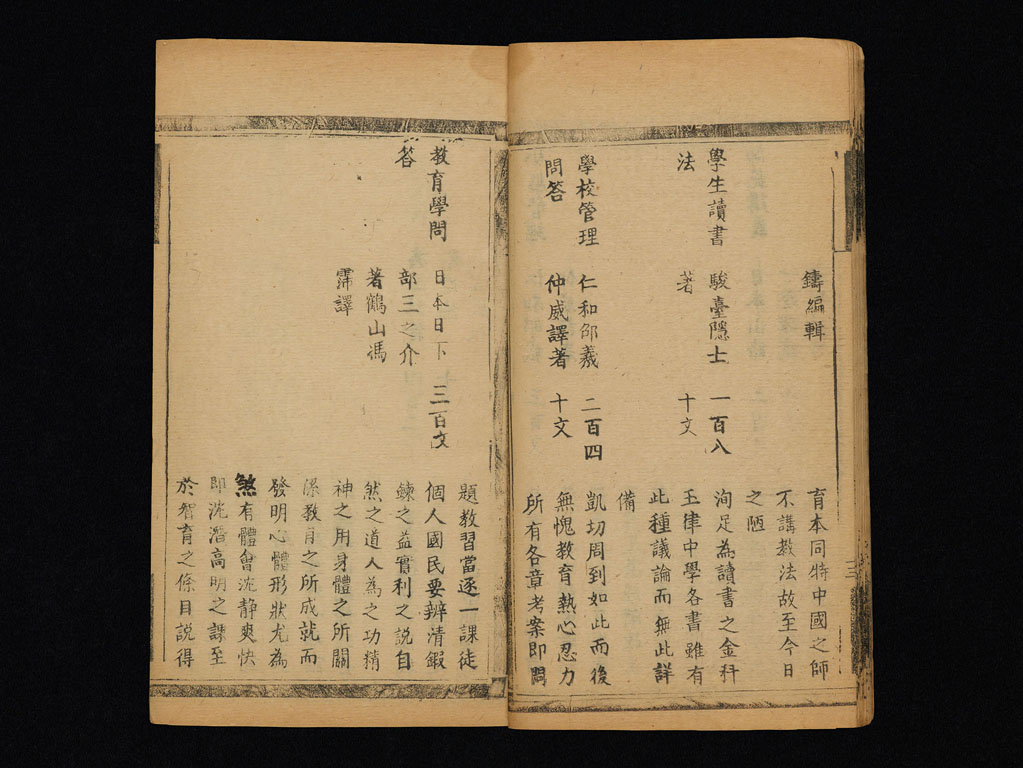 鑄編輯
育本同特中國之師
不講教法故至今日
之陋
學生讀書
法
駿臺隱士
著
一百八
十文
洵足為讀書之金科
玉律中學各書雖有
此種議論而無此詳
備
學校管理
問答
仁和邵羲
仲威譯著
二百四
十文
凱切周到如此而後
無愧教育熱心忍力
所有各章考案即問
三
教育學問
答
日本日下
部三之介
著鶴山馮
霈譯
三百文
題教習當逐一課徒
個人國民要辨清鍛
鍊之益實利之説自
然之道人為之功精
神之用身體之所關
係教育之所成就而
發明心體形狀尤為
煞有體會沈静爽快
即沈潛高明之課至
於智育之條目説得